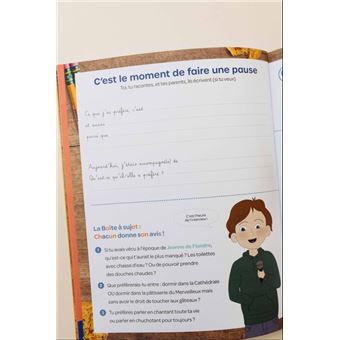 C'est le moment de faire une pause
Toi, tu racontes, et tes parents, ils écrivent (si tu veux)
Ce que j'ai préféré, c'est
et aussi
parce que
Aujourd'hui, j'étais accompagné(e) de
Qu'est-ce qu'il/elle a préféré ?
C'est l'heure
de l'interview !
La Boîte à sujet :
Chacun donne son avis !
1 Si tu avais vécu à l'époque de Jeanne de Flandre,
qu'est-ce qui t'aurait le plus manqué ? Les toilettes
avec chasse d'eau ? Ou de pouvoir prendre
des douches chaudes ?
2 Que préférerais-tu entre : dormir dans la Cathédrale
OU dormir dans la pâtisserie du Merveilleux mais
sans avoir le droit de toucher aux gâteaux ?
3 Tu préfères parler en chantant toute ta vie
ou parler en chuchotant pour toujours ?